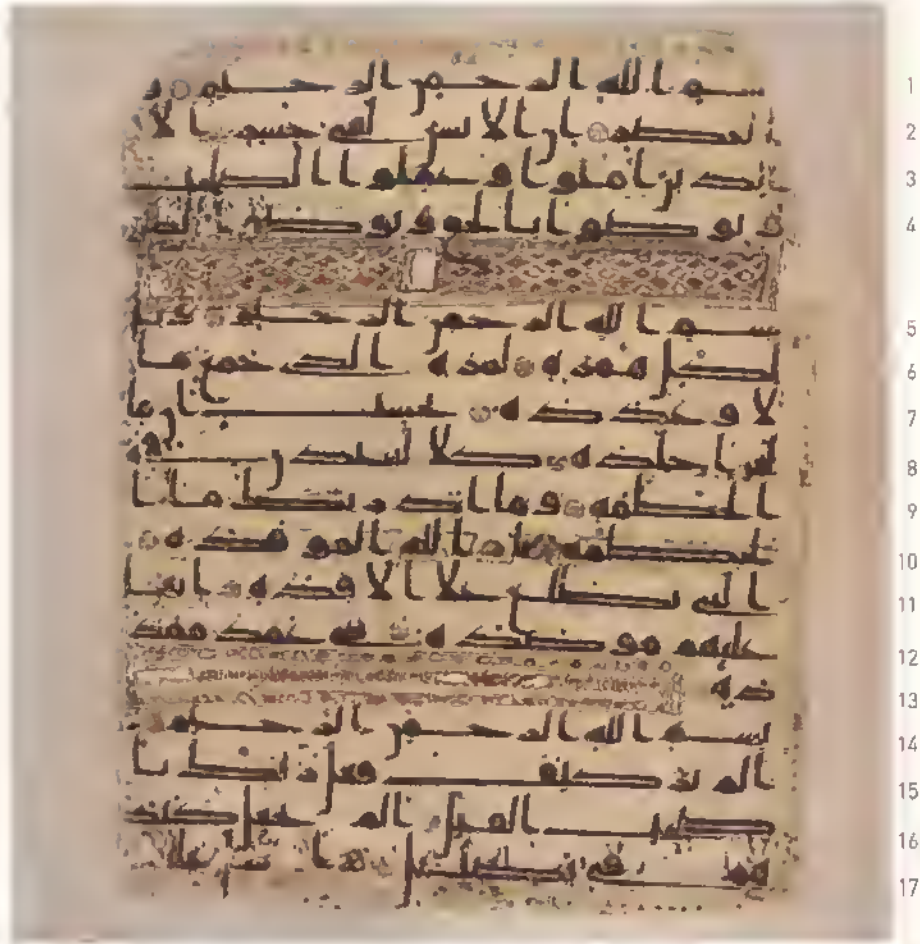 1 بسم الله الرحمن الرحيم و
2 العصر ان الانسن لفى خسر الا
3 الذين امنوا و عملوا الصلحت
4 و توصوا بالحق و توصوا بالصبر
5 بسم الله الرحمن الرحيم ويل
6 لكل همزة لمزة الذى جمع ما
7 لا و عدده يحسب ان ما
8 له اخلده كلا لينبذن فى
9 الحطمة و ما ادريك ما ا
10 لحطمة نار الله الموقدة
11 التى تطلع على الافدة انها
12 عليهم موصدة فى عمد ممدد
13 ة
14 بسم الله الرحمن الرحيم
15 الم تر كيف فعل ربك با
16 صحب الفيل الم يجعل كيد
17 هم فى تضليل و ارسل عليهم